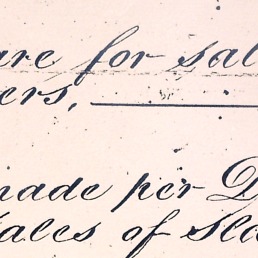 are for sal
ers,
made per D
ales of Sla